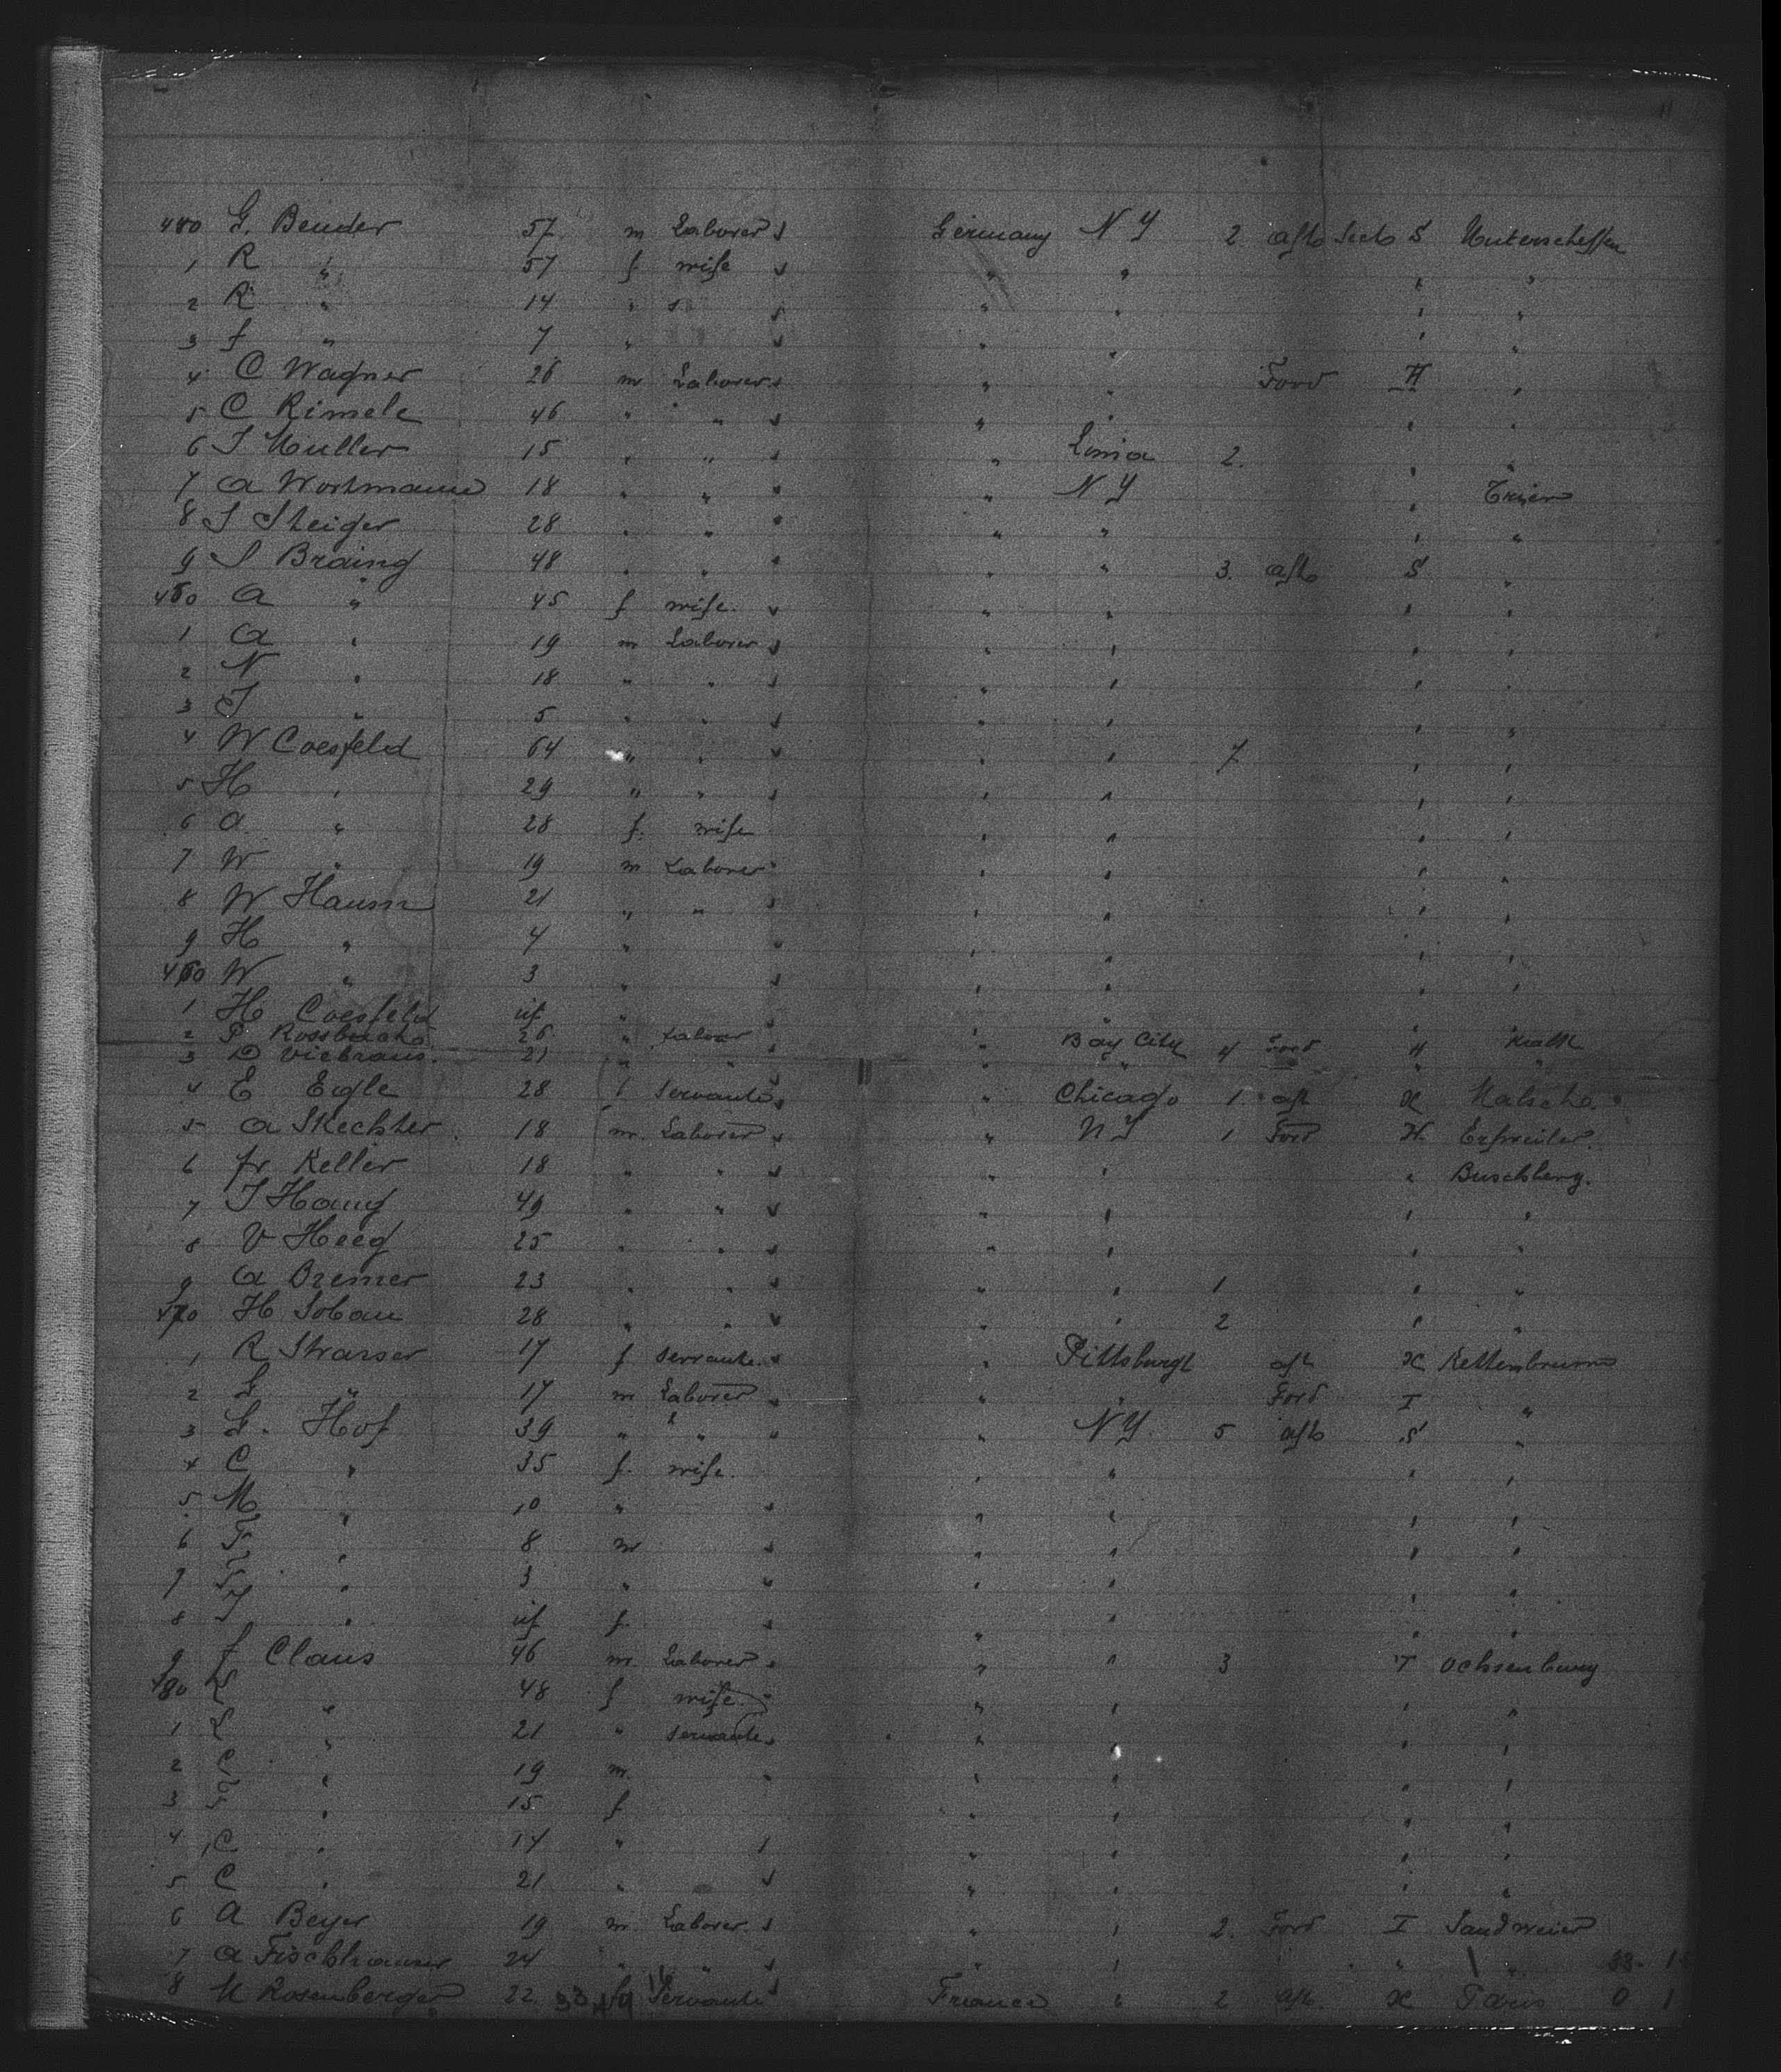 11
440 G. Bender 57 m Laborer s Germany N Y 2 aft Sect S Unterscheffen
1 R " 57 f wife s " " " "
2 R " 14 " s s " " " "
3 f " 7 " s " " " "
4 C Wagner 26 m Laborer s " " Ford H "
5 C Rimele 46 " " s " " " "
6 J Muller 15 " " s " Ionia 2. " "
7 A Wortmann 18 " " s " N Y " Trier
8 J Steiger 28 " " s " " " "
9 S Braing 48 " " s " " 3. aft S "
450 A " 45 f wife. s " " " "
1 A " 19 m Laborer s " " " "
2 N " 18 " " s " " " "
3 J " 5 " " s " " " "
4 W Coesfeld 64 " " s " " 7 " "
5 H " 29 " " s " " " "
6 A " 28 f. wife " " " "
7 W " 19 m Laborer " " " " "
8 W Hausm 21 " " s " " " "
9 H " 4 " " " " " "
460 W " 3 " s " " " "
1 H Coesfeld inf " s " " " "
2 P Rossbach 26 " Labor " Bay City 4 Ford H
3 D Viebrans. 21 " s " " " "
4 E Egle 28 f Servante s " Chicago 1. aft X Malsch.
5 A Stechter 18 m. Laborer s " N Y 1 Ford H. Erfweiler.
6 fr Keller 18 " " s " " " Buschberg.
7 J Haug 49 " " s " " " "
8 V Heeg 25 " " s " " " "
9 A Bremer 23 " " s " " 1 " "
470 H Soban 28 " " s " " 2 " "
1 R Strasser 17 f Servante s " Pittsburgh aft X Kettenbrunn
2 G " 17 m Laborer s " " Ford I "
3 G. Hof 39 " " " " N Y. 5 aft S "
4 C " 35 f. wife. " " " "
5 M " 10 " s " " " "
6 F " 8 m s " " " "
7 F " 3 " " " " " "
8 J " inf f. s " " " "
9 f Claus 46 m. Laborer s " " 3 T Ochsenburg
480 K " 48 f wife. " " " "
1 L " 21 " servante s " " " "
2 C " 19 m. " " " " "
3 F " 15 f " " " "
4 C " 14 " s " " " "
5 C " 21 " s " " " "
6 A Beyer 19 m. Laborer s " " 2. Ford I Sandweier
7 A Fischhauser 24 " " s " " " " 33- 1
8 M Rosenberger 22. 33 f Servante s France " 2 aft. X Paris 0 1